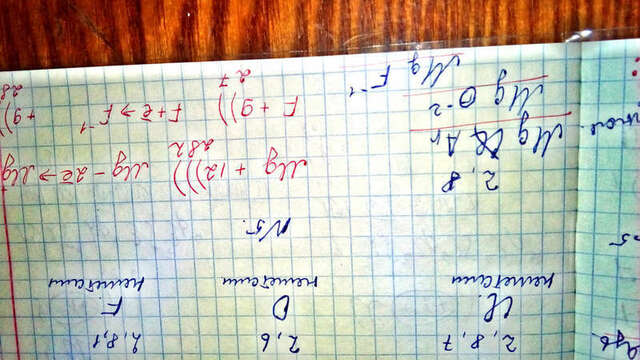 2,8,7 2,6 2,8,1
O F.
неметалл неметалл неметалл
N5.
2,8 Mg +12))) Mg - 2e → Mg
2 8 2
Mg Ar
Mg O⁻² F +9)) F + e → F⁻¹ +9))
2 7 2 8
Mg F⁻¹